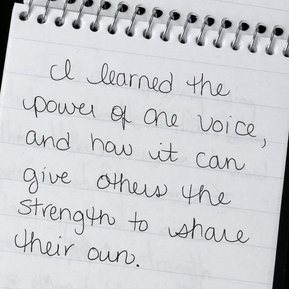 I learned the
power of one voice,
and how it can
give others the
strength to share
their own.